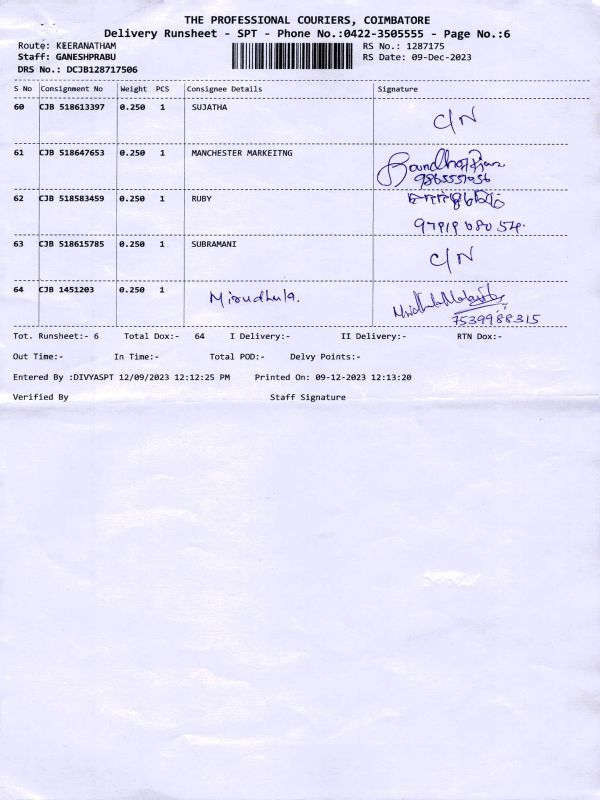 THE PROFESSIONAL COURIERS, COIMBATORE
Delivery Runsheet - SPT - Phone No.:0422-3505555 - Page No.:6
Route: KEERANATHAM RS No.: 1287175
Staff: GANESHPRABU RS Date: 09-Dec-2023
DRS No.: DCJB128717506
S No Consignment No Weight PCS Consignee Details Signature
60 CJB 518613397 0.250 1 SUJATHA C/N
61 CJB 518647653 0.250 1 MANCHESTER MARKEITNG
9865551056
62 CJB 518583459 0.250 1 RUBY
97919 080 54.
63 CJB 518615785 0.250 1 SUBRAMANI C/N
64 CJB 1451203 0.250 1 Mirudhula.
7539988315
Tot. Runsheet:- 6 Total Dox:- 64 I Delivery:- II Delivery:- RTN Dox:-
Out Time:- In Time:- Total POD:- Delvy Points:-
Entered By :DIVYASPT 12/09/2023 12:12:25 PM Printed On: 09-12-2023 12:13:20
Verified By Staff Signature